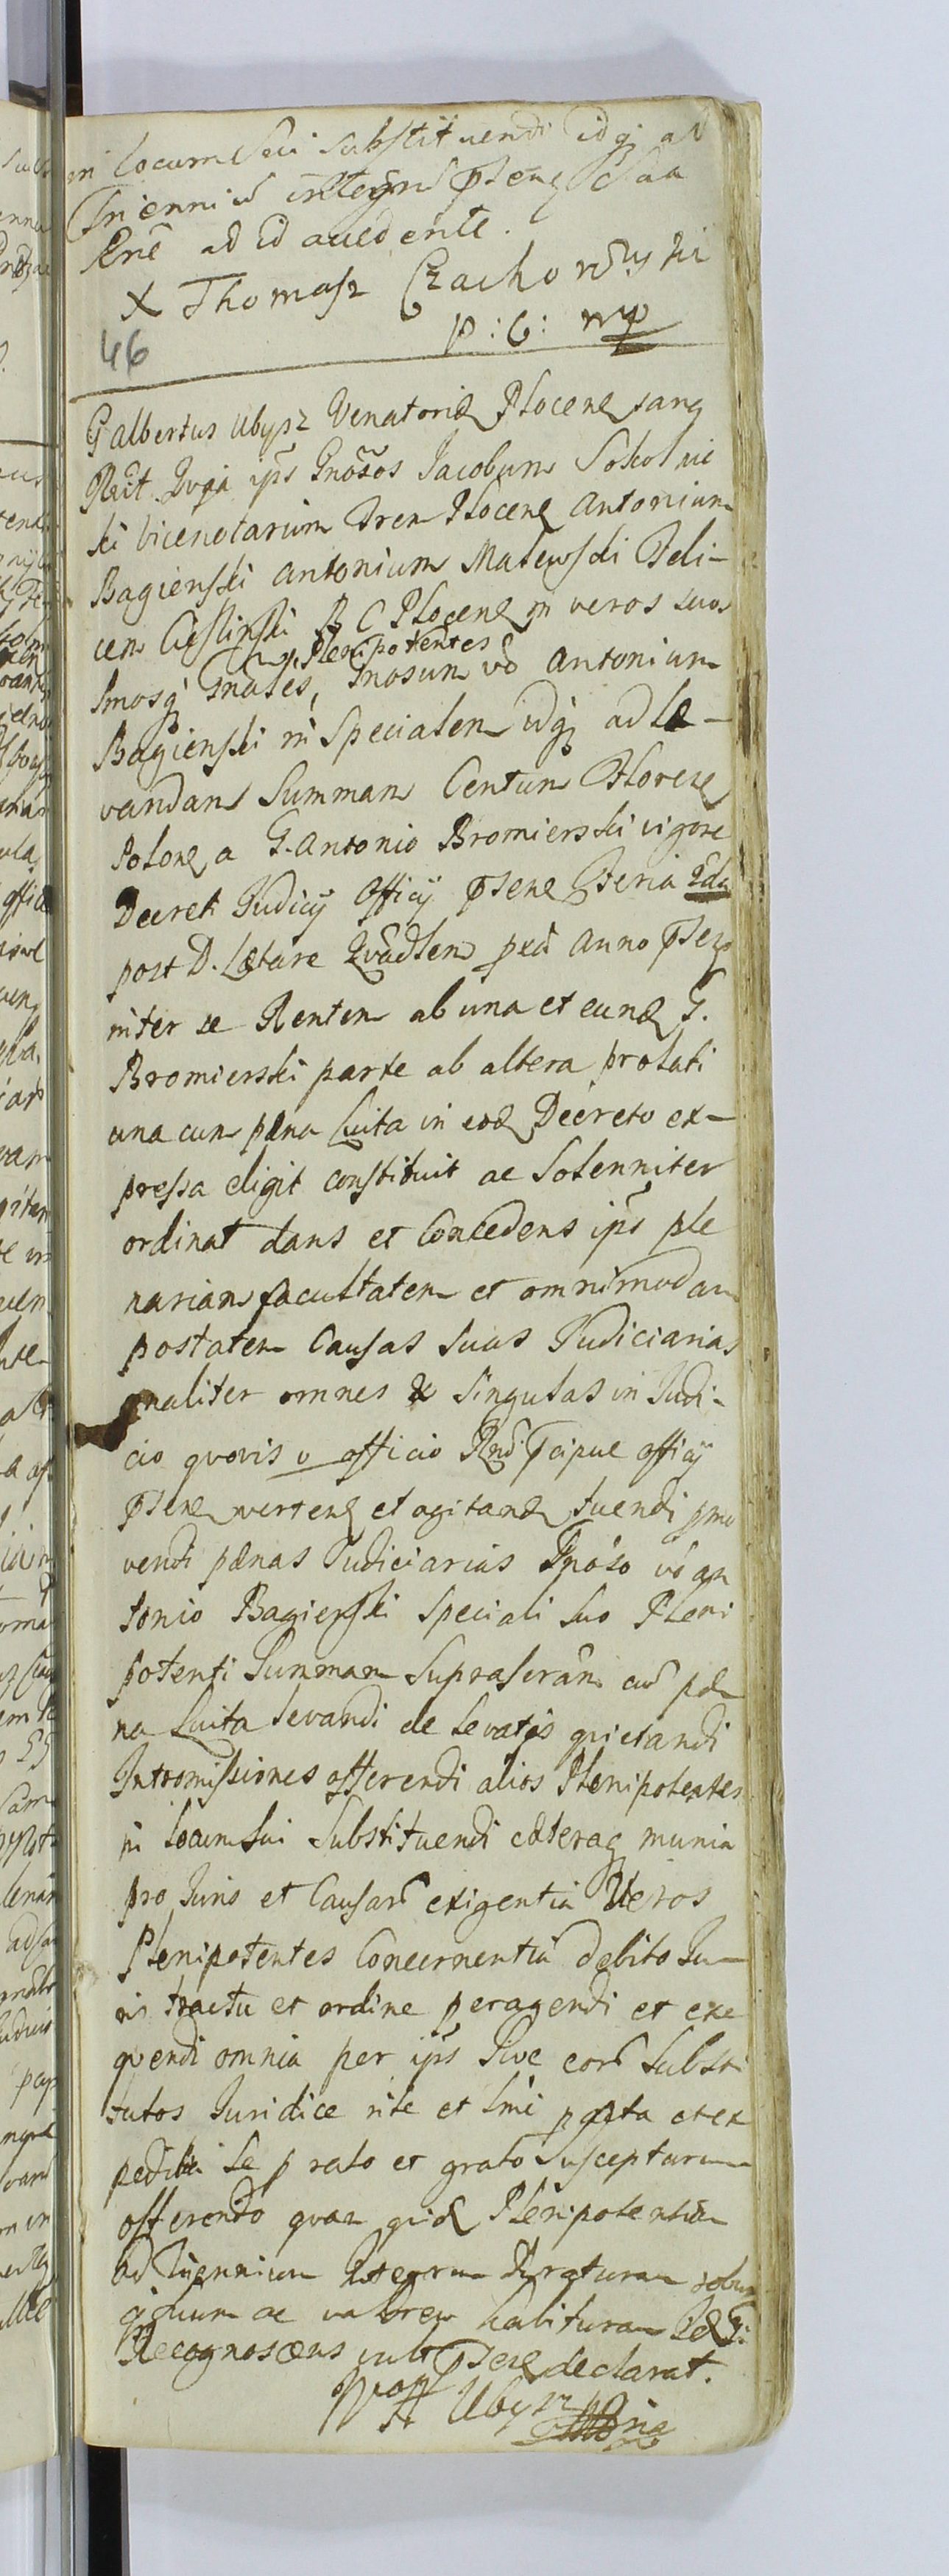 in locum sui substituendi idq ad
Trienniu integru psens Sua
Rne ad id accedente.
X Thomasz Czachorowski
P : C : mp
46
G albertus Ubysz Venatorid Plocen sanq
Recit Quia ips Gnosos Jacobum Sokolnic
ki vicenotarium Tren Plocen Antonium
Bagienski Antonium Matewski Feli-
cem Cieslinski B C Plocen in veros suos
Plenipotentes
lmosq Gnales, Gnosum vo Antonium
Bagienski in Specialem idq ad le-
vandam Summam Centum Floren
Polon a G. Antonio Bromierski vigore
Decreti Judicij Officij psen Feria 2da
post D. Lætare Quadlem pxa Anno psen
inter se Rentem ab una et eund G.
Bromierski parte ab altera prolati
una cum pæna Luita in eod Decreto ex-
pressa eligit constituit ac Solenniter
ordinat dans et Concedens ips ple
nariam facultatem et omnimodam
postatem Causas suas Judiciarias
gnaliter omnes & singulas in Judi-
cio quovis v officio Rnd Pcipue officij
psen verten et agitand tuendi pmo
vendi pænas Judiciarias Gnoso vo An
tonio Bagienski Speciali suo Pleni
potenti Summam Suprascram cu pæ
na Luita levandi de levatis quietandi
Intromissiones offerendi alios Plenipotentes
in locum sui Substituendi cæteraq munia
pro Juris et Causaru exigentia Veros
Plenipotentes Concernentia debito Ju-
ris tractu et ordine peragendi et exe
quendi omnia per ips Sive eoru Substi
tutos Juridice rite et lmi pacta et ex
pedita Se p rato et grato Suscepturum
offerendo quam quid Plenipotentiam
ad Triennium Integrum Duraturam robur
ac valorem habituram
Recognoscens sub psen declarat.
Ubysz